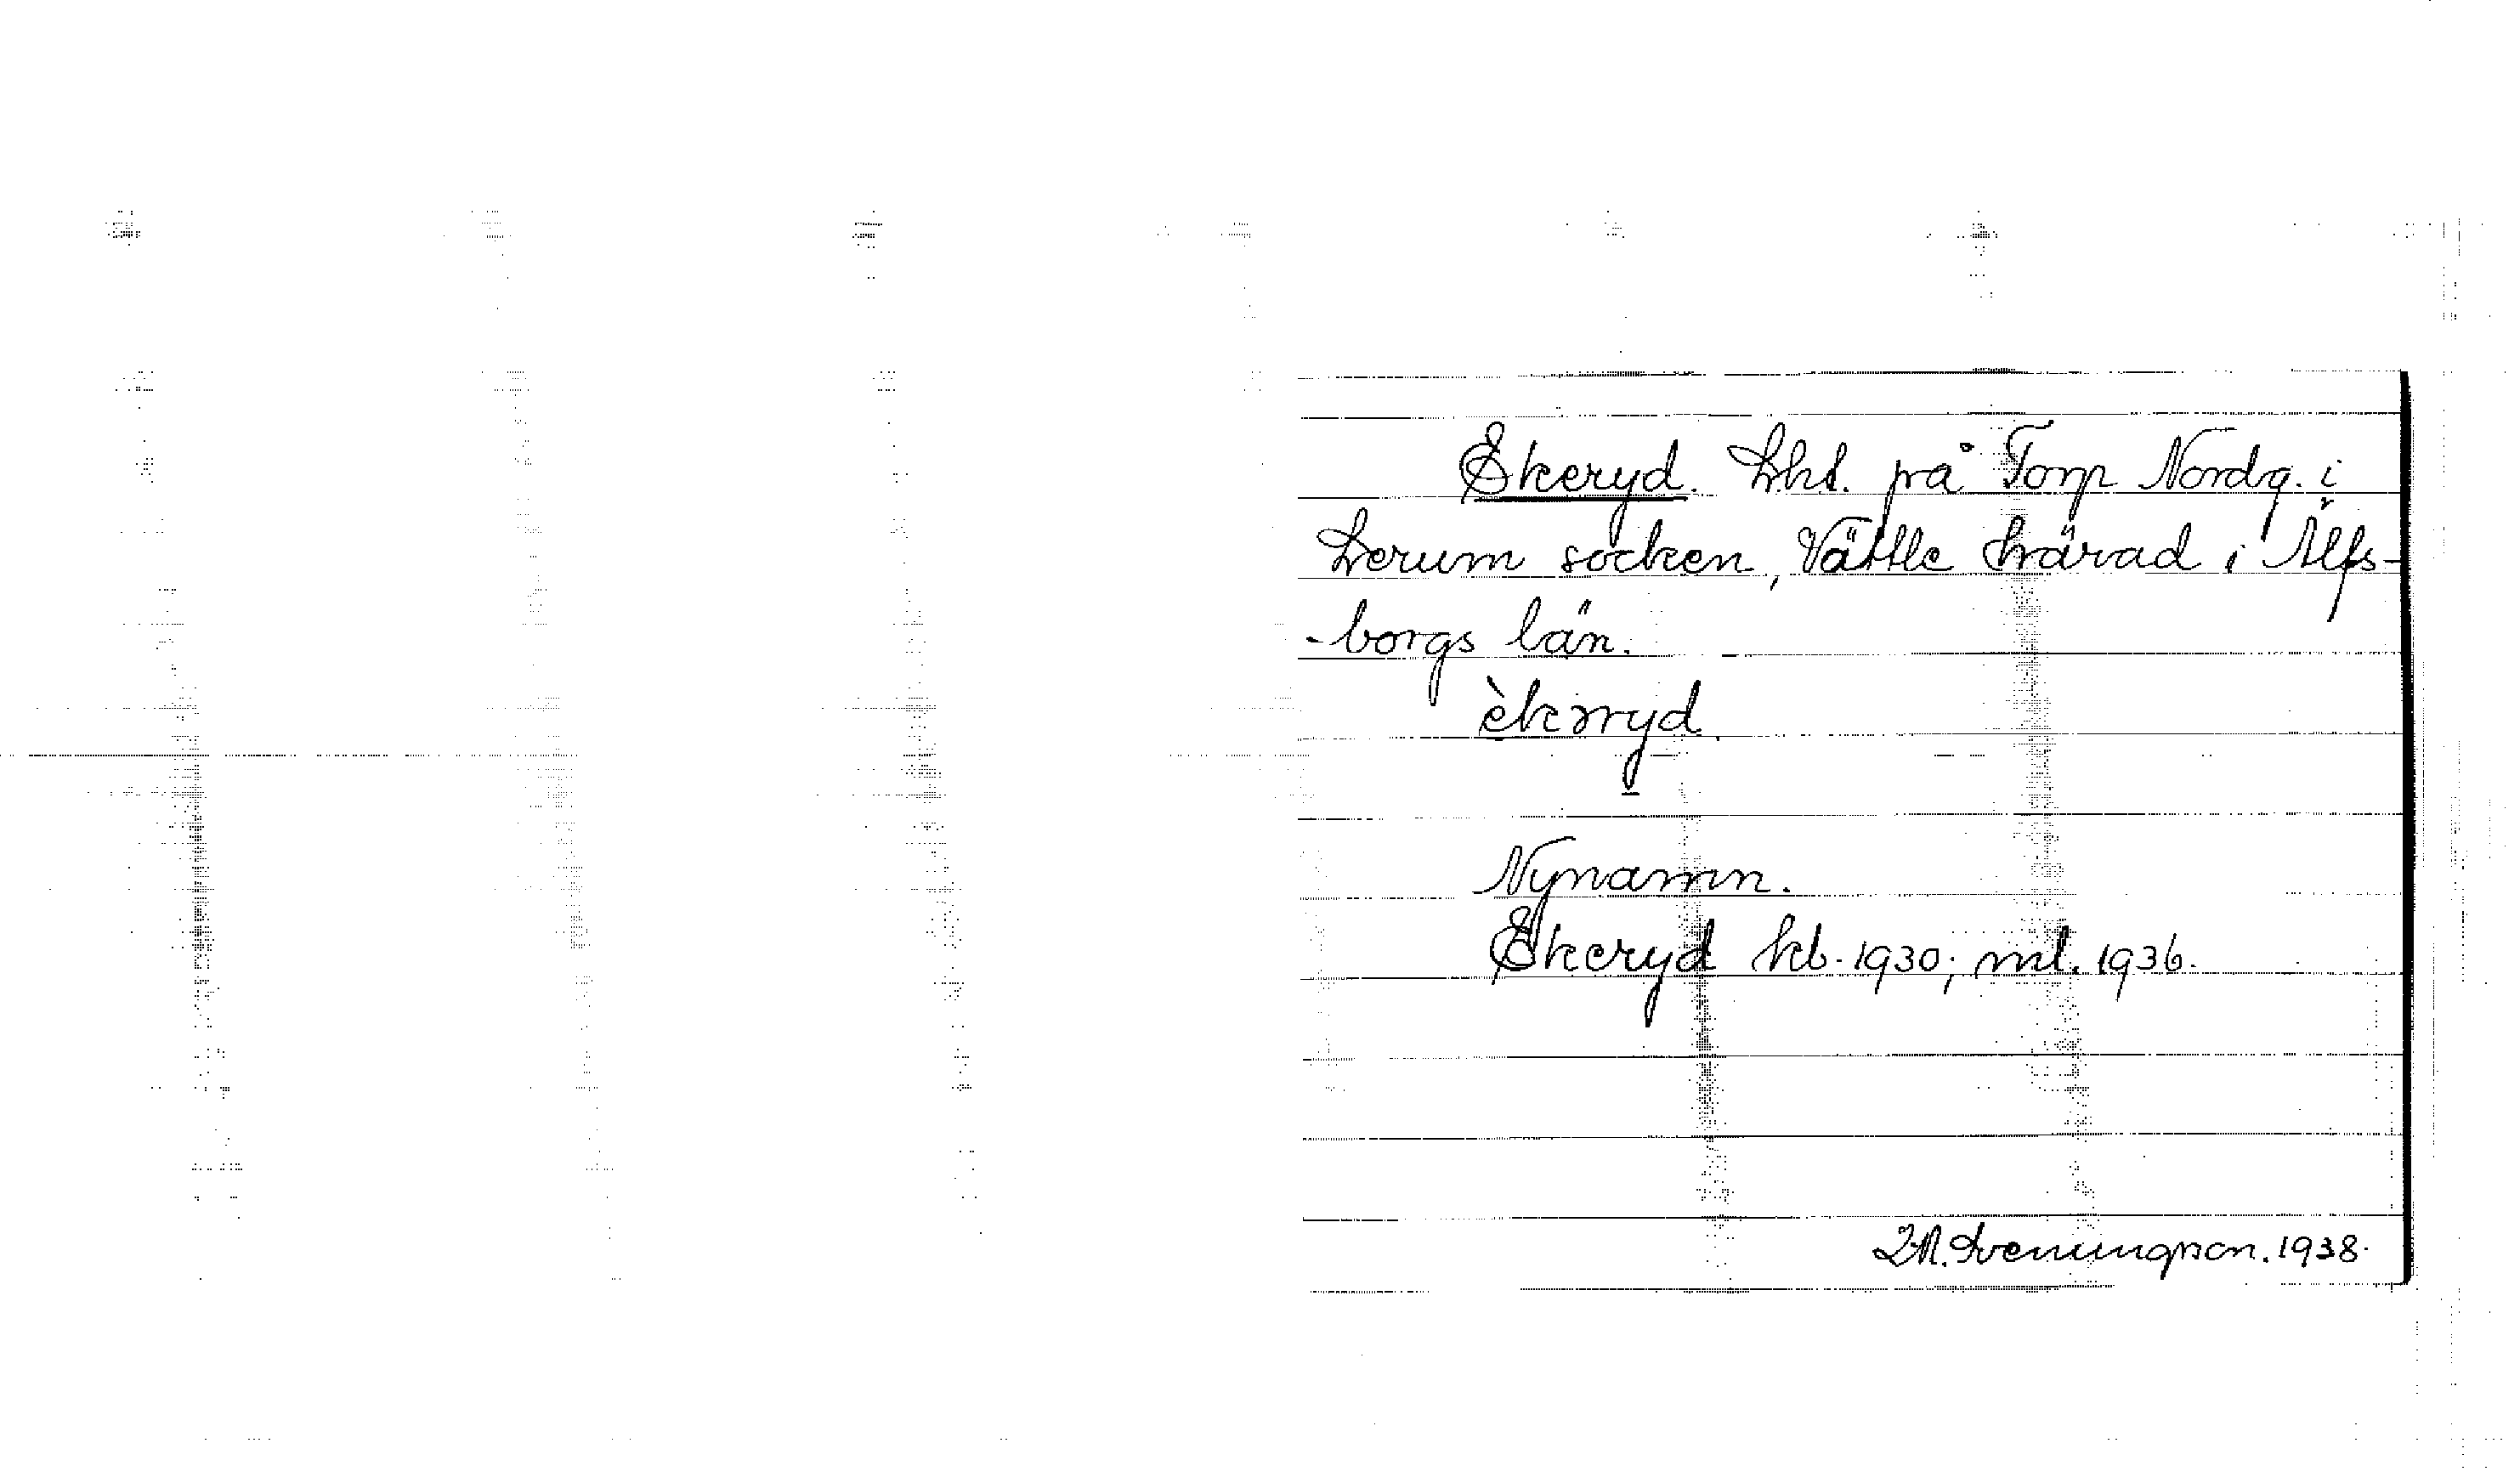 Ekeryd. Lht. på Torp Nordg. i
Lerum socken, Vättle härad i Älfs-
-borgs län.
èkərryd.
Nynamn.
Ekeryd kb. 1930; ml. 1936.
Sveningson. 1938.